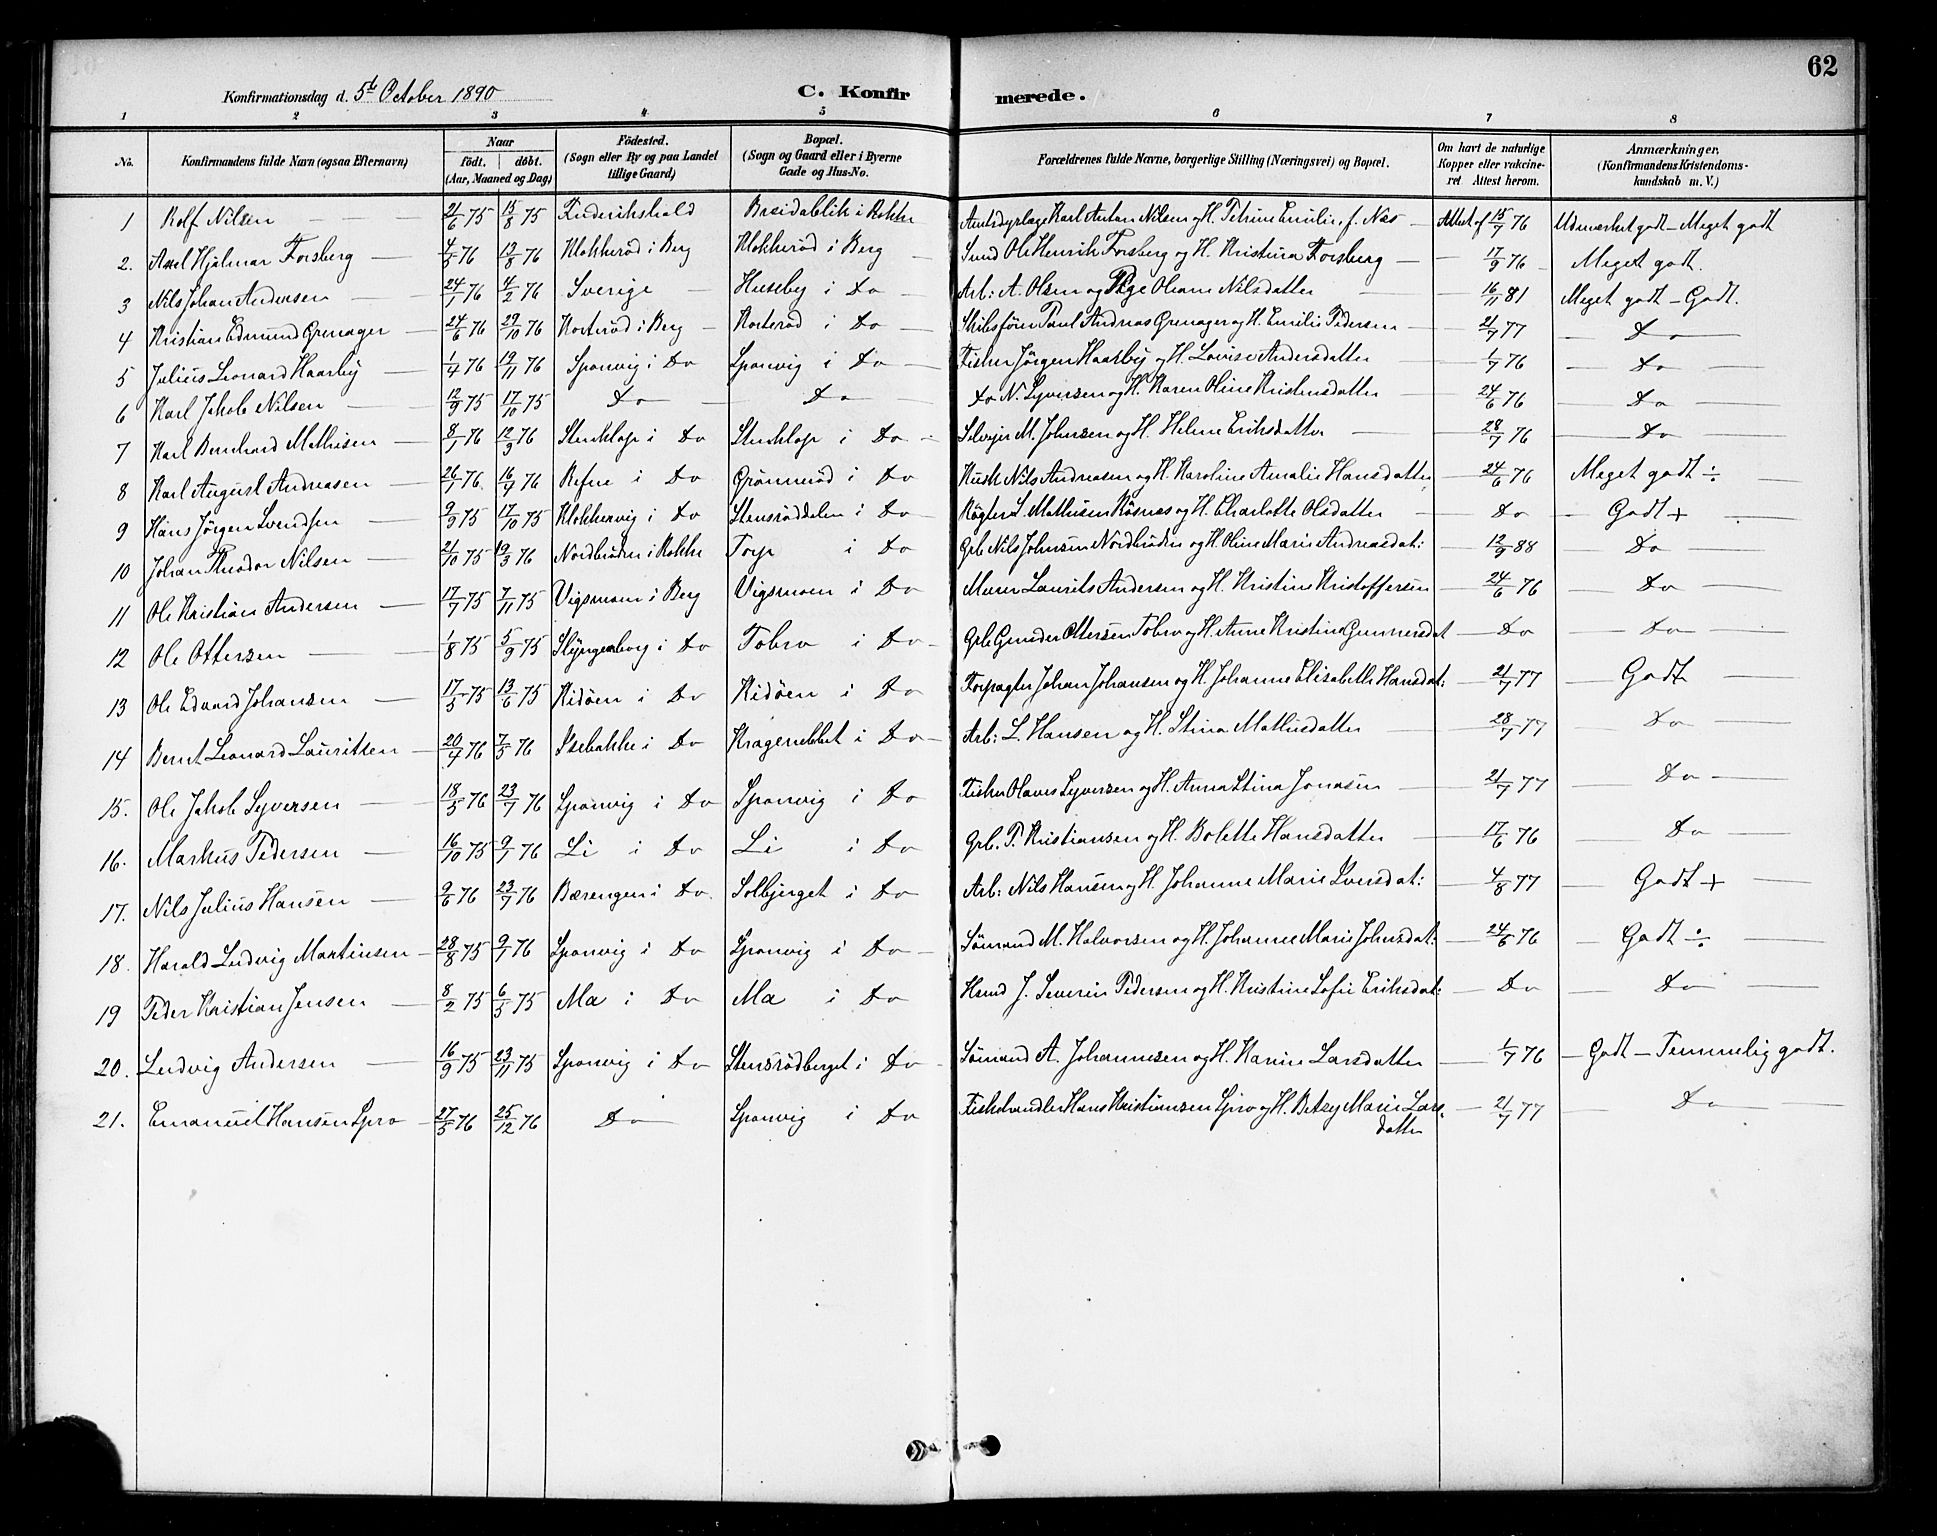 62
Konfirmationsdag d. 5te October 1890
C. Konfirmerede.
1 2 3 4 5 6 7 8
No. | Konfirmandens fulde Navn (ogsaa Efternavn) | Naar født. | døbt. (Aar, Maaned og Dag) | Födested. (Sogn eller By og paa Landet tillige Gaard) | Bopæl. (Sogn og Gaard eller i Byerne Gade og Hus-No. | Forældrenes fulde Navne, borgerlige Stilling (Næringsvei) og Bopæl. | Om havt de naturlige Kopper eller vakcineret Attest herom. | Anmærkninger. (Konfirmandens Kristendomskundskab m. V.)
1 Rolf Nilsen — 21/6 75 15/8 75 Frederikshald Breidablik i Rokke Amtsdyrlæge Karl Anton Nilsen og H. Petrine Emilie, f. Næs — Attest af 15/7 76 Udmærket godt — Meget godt
2. Axel Hjalmar Forsberg — 4/5 76 13/8 76 Klokkerød i Berg Klokkerød i Berg — Smed Ole Henrik Forsberg og H. Kristina Forsberg — 17/9 76 — Meget godt.
3 Nils Johan Andersen — 24/1 76 4/2 76 Sverige — Huseby i Do — Arb: A. Olsen og Pige Oliane Nilsdatter — 16/11 81 Meget godt — Godt.
4 Kristian Edmund Grenager — 24/6 76 29/10 76 Korterød i Berg — Korterød i Do — Skibsfører Paul Andreas Grenager og H. Emilie Pedersen — 21/7 77 — Do —
5 Julius Leonard Haarby — 1/4 76 19/11 76 Sponvig i Do Sponvig i Do — Fisker Jørgen Haarby og H. Lovise Andersdatter — 1/7 76 — Do —
6 Karl Jakob Nilsen — 12/9 75 17/10 75 Do — Do — Do N. Syversen og H. Karen Oline Kristensdatter — 24/6 76 — Do —
7 Karl Bernhard Mathisen — 8/1 76 12/3 76 Stenklop i Do Stenklop i Do — Selvejer M. Johnsen og H. Helene Eriksdatter — 28/7 76 — Do —
8 Karl August Andreasen — 26/1 76 16/4 76 Refne i Do Grønnerød i Do Husm Nils Andreasen og H. Karoline Amalie Hansdatter — 24/6 76 Meget godt ÷ —
9 Hans Jørgen Svendsen — 9/9 75 17/10 75 Klokkervig i Do Stensröddalen i Do — Røgter L. Mathisen Røsnæs og H. Charlotte Olsdatter — Do — Godt + —
10 Johan Theodor Nilsen — 21/10 75 19/3 76 Nordbuden i Rokke Torp i Do Grb Nils Johnsen Nordbuden og H. Oline Marie Andreasdat: — 12/9 88 — Do —
11 Ole Kristian Andersen — 17/7 75 7/11 75 Vigsmoen i Berg Vigsmoen i Do — Murer Laurits Andersen og H. Kristine Kristoffersen — 24/6 76 — Do —
12 Ole Ottersen — 1/8 75 5/9 75 Slyngenborg i Do Tobro i Do — Grb Gunder Ottersen Tobro og H. Anne Kristine Gunnersdat — Do — Do —
13 Ole Edvard Johansen — 17/5 75 13/6 75 Kidøen i Do Kidøen i Do Forpagter Johan Johansen og H. Johanne Elisabeth Hansdat: — 21/7 77 — Godt —
14 Bernt Leonard Lauritsen — 20/4 76 7/5 76 Isebakke i Do Kragenebbet i Do — Arb: L. Hansen og H. Stina Mathisdatter — 28/7 77 — Do —
15. Ole Jakob Syversen — 18/5 76 23/7 76 Sponvig i Do Sponvig i Do Fisker Olaves Syversen og H. Anna Stina Jonasen — 21/7 77 — Do —
16. Markus Pedersen — 16/10 75 9/1 76 Li i Do Li i Do Grb. P. Kristiansen og H. Bolette Hansdatter — 17/6 76 — Do —
17. Nils Julius Hansen — 9/6 76 23/7 76 Bærengen i Do Solbjerget i Do Arb: Nils Hansen og H. Johanne Marie Iversdat: — 4/8 77 — Godt + —
18. Harald Ludvig Martinsen — 28/8 75 9/1 76 Sponvig i Do Sponvig i Do — Sömand M. Halvorsen og H. Johanne Marie Johnsdat: — 24/6 76 — Godt ÷ —
19 Peder Kristian Jensen — 8/2 75 6/5 75 Ma i Do Ma i Do Hsmd J. Severin Pedersen og H. Kristine Sofie Eriksdat: — Do — Do —
20. Ludvig Andersen — 16/9 75 23/11 75 Sponvig i Do Stensrödberget i Do — Sömand A. Johannesen og H. Karin Larsdatter — 1/7 76 — Godt — Temmelig godt.
21. Emanuel Hansen Spro — 27/5 76 25/12 76 Do — Sponvig i Do Fiskehandler Hans Kristiansen Spro og H. Betzy Marie Lars-
datter — 21/7 77 — Do —